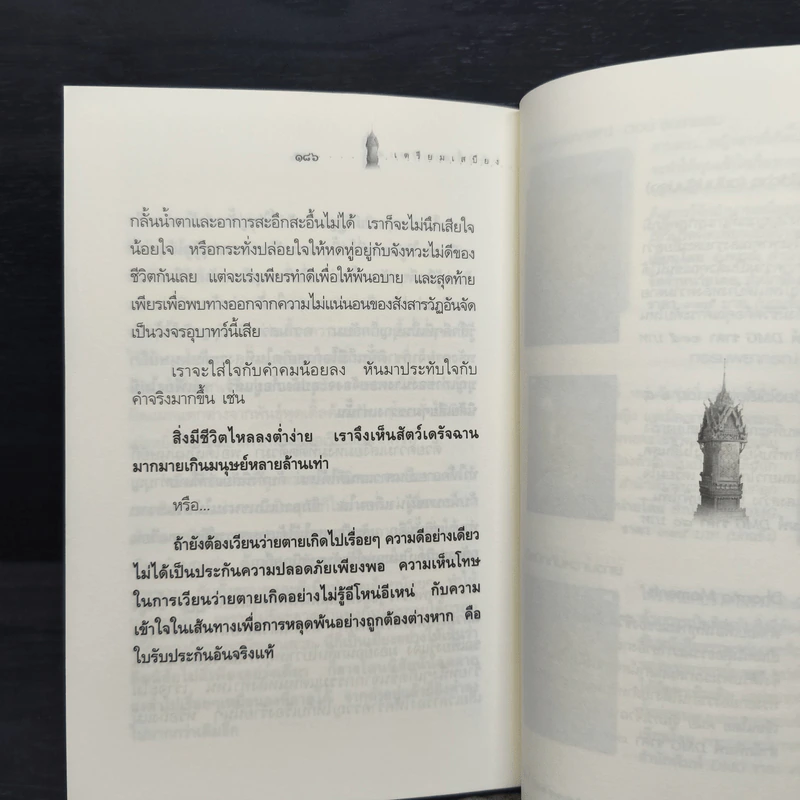 ๑๘๖ เตรียมเสบียง
กลั้นน้ำตาและอาการสะอึกสะอื้นไม่ได้ เราก็จะไม่นึกเสียใจ
น้อยใจ หรือกระทั่งปล่อยใจให้หดหู่อยู่กับจังหวะไม่ดีของ
ชีวิตกันเลย แต่จะเร่งเพียรทำดีเพื่อให้พ้นอบาย และสุดท้าย
เพียรเพื่อพบทางออกจากความไม่แน่นอนของสังสารวัฏอันจัด
เป็นวงจรอุบาทว์นี้เสีย
เราจะใส่ใจกับคำคมน้อยลง หันมาประทับใจกับ
คำจริงมากขึ้น เช่น
สิ่งมีชีวิตไหลลงต่ำง่าย เราจึงเห็นสัตว์เดรัจฉาน
มากมายเกินมนุษย์หลายล้านเท่า
หรือ...
ถ้ายังต้องเวียนว่ายตายเกิดไปเรื่อยๆ ความดีอย่างเดียว
ไม่ได้เป็นประกันความปลอดภัยเพียงพอ ความเห็นโทษ
ในการเวียนว่ายตายเกิดอย่างไม่รู้อีโหน่อีเหน่ กับความ
เข้าใจในเส้นทางเพื่อการหลุดพ้นอย่างถูกต้องต่างหาก คือ
ใบรับประกันอันจริงแท้